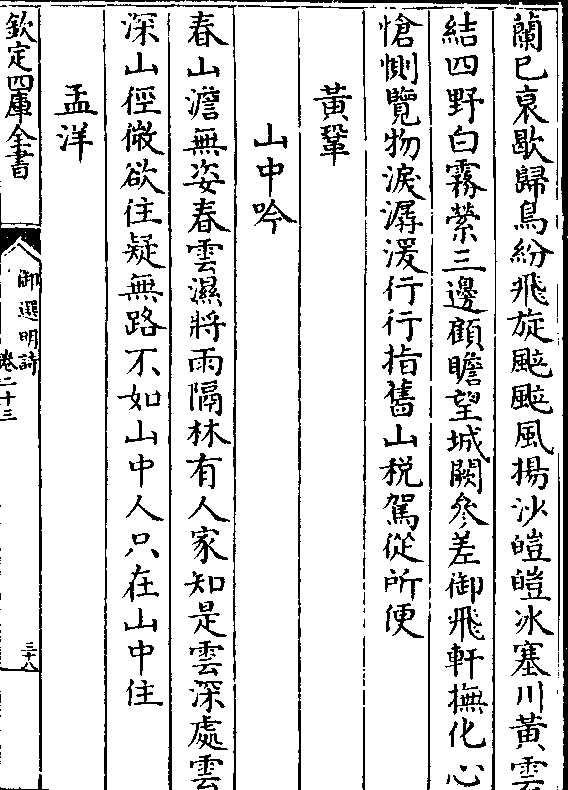 蘭已衰歇歸鳥紛飛旋颼颼風揚沙皚皚冰塞川黃雲
結四野白霧縈三邊顧瞻望城闕參差御飛軒撫化心
愴惻覽物淚潺湲行行指舊山税駕從所便
黃鞏
山中吟
春山澹無姿春雲濕將雨隔林有人家知是雲深處雲
深山徑微欲往疑無路不如山中人只在山中住
孟洋
欽定四庫全書
御選明詩
卷二十三
三十八